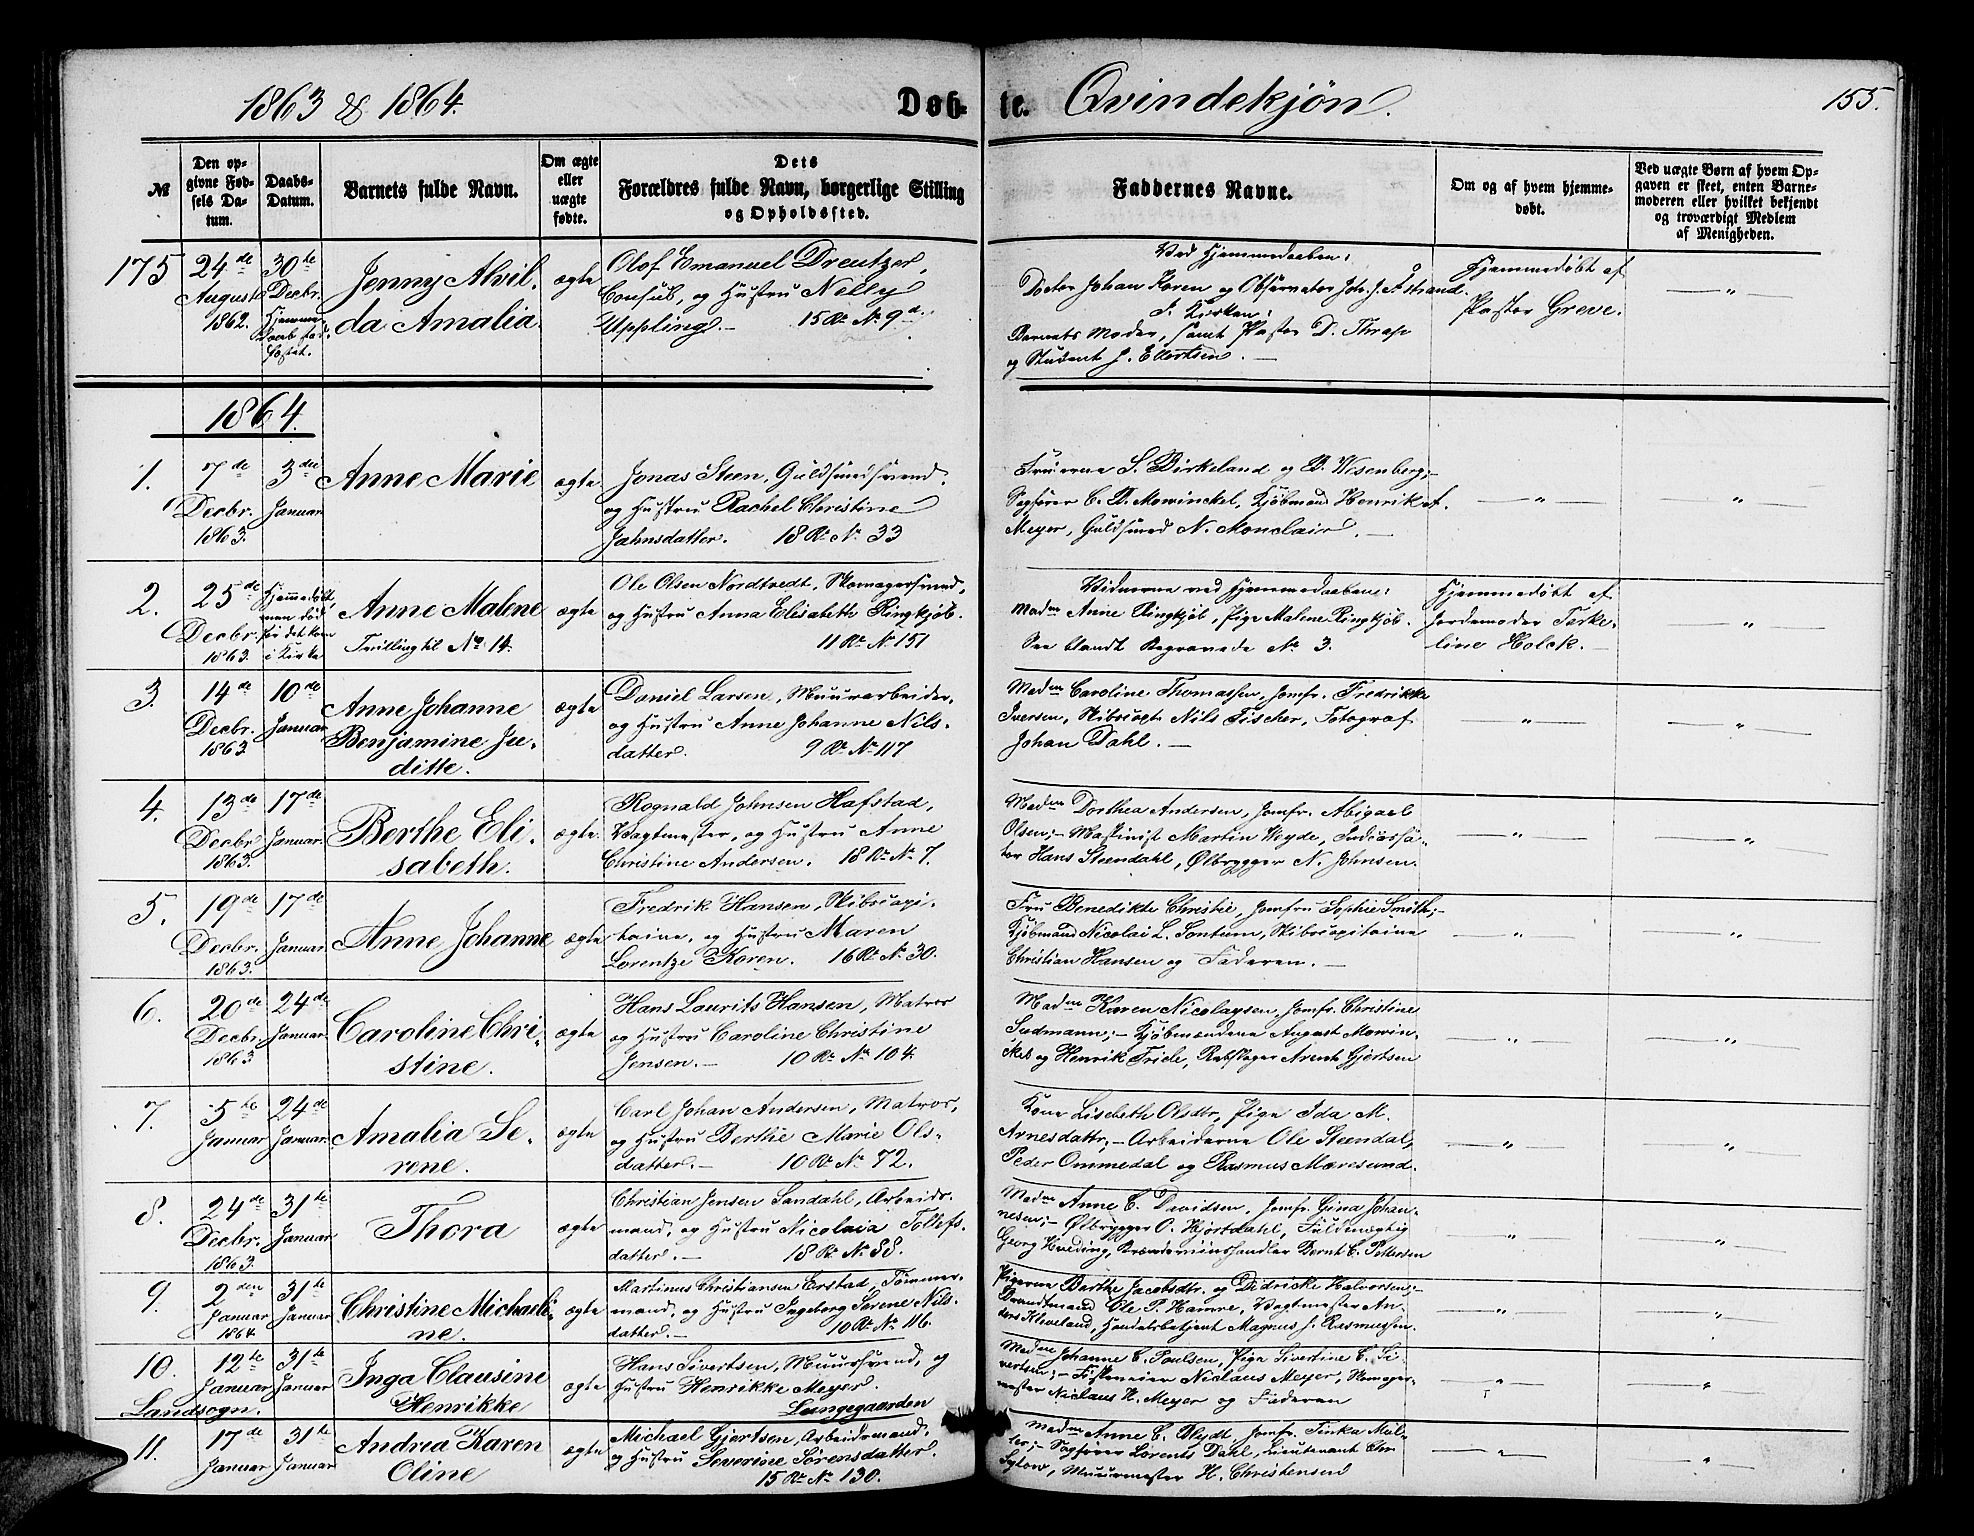 1863 & 1864.
Døb-
te.
Qvindekjøn.
155.
№
Den op-
givne Fød-
sels Da-
tum.
Daabs-
Datum.
Barnets fulde Navn.
Om ægte
eller
uægte
fødte.
Dets
Forældres fulde Navn, borgerlige Stilling
og Opholdssted.
Faddernes Navne.
Om og af hvem hjemme-
døbt.
Ved uægte Børn af hvem Op-
gaven er skeet, enten Barne-
moderen eller hvilket bekjendt
og troværdigt Medlem
af Menigheden.
175
24de
August
1862.
30te
Decbr.
Jenny Alvil-
da Amalia.
ægte
Olof Emanuel Dreutzer,
Consul, og Hustru Nelly
Uppling. — 15 R. No 9a.
Ved Hjemmedaaben:
Doctor Johan Koren og Observator Joh. J. Åstrand.
I Kirken:
Barnets Moder, samt Pastor D. Thrap
og Student J. Ellertsen. —
Hjemmedøbt af
Pastor Greve.
— " —
1864.
1.
7de
Decbr.
1863.
3die
Januar
Anne Marie
ægte
Jonas Steen, Guldsmedsvend.
og Hustru Rachel Christine
Jahnsdatter. 18 R. No 33
Fruerne S. Birkeland og B. Wesenberg;-
Sagfører C. B. Mowinckel, Kjøbmand Henrik f.
Meyer, Guldsmed N. Monclair. —
— " —
"
2.
25de
Decbr.
1863.
Hjemmedøbt,
men død
før det kom
i Kirke
Anne Malene
Trilling til No 14.
ægte
Ole Olsen Nordtvedt, Skomagersvend,
og Hustru Anna Elisabeth Ringkjøb.
11 R. No 151
Vidnerne ved Hjemmedaaben:
Madm Anne Ringkjøb, Pige Malene Ringkjøb.
See blandt Begravede No 3.
Hjemmedøbt af
Jordemoder Terke-
line Holck. —
"
3.
14de
Decbr.
1863.
10de
Januar
Anne Johanne
Benjamine Ju-
ditte.
ægte
Daniel Larsen, Muurarbeider,
og Hustru Anne Johanne Nils-
datter. 9 R. No 117
Madm Caroline Thomassen, Jomfr. Fredrikke
Iversen, Skibscapt. Nils Fischer, Fotograf
Johan Dahl. —
"
— "
4.
13de
Decbr
1863.
17de
Januar.
Berthe Eli-
sabeth.
ægte.
Rognald Johnsen Hafstad,
Vagtmester, og Hustru Anne
Christine Andersen. 18 R. No 7.
Madm Dorthea Andersen, Jomfr. Abigael
Olsen;- Maskinist Martin Weyde,
Hans Steendahl, Ølbrygger N. Johnsen.
— " —
— " —
5.
19de
Decbr.
1863.
17de
Januar.
Anne Johanne
ægte
Fredrik Hansen, Skibscapi-
taine, og Hustru Maren
Lorentze Koren. 16 R. No 30.
Fru Benedikte Christie, Jomfru Sophie Smith;-
Kjøbmand Nicolai L. Sontum, Skibscapitaine
Christian Hansen og Faderen. —
— " —
— " —
6.
20de
Decbr.
1863
24de
Januar.
Caroline Chri-
stine.
ægte
Hans Laurits Hansen, Matros
og Hustru Caroline Christine
Jensen. — 10 R. No 104.
Madm Karen Nicolaysen, Jomfr. Christine
Sudmann;- Kjøbmændene August Mowin-
kel og Henrik Friele, Rebslager Arent Gjertsen
— " —
— " —
7.
5te
Januar
24de
Januar.
Amalia Se-
rene.
ægte
Carl Johan Andersen, Matros,
og Hustru Berthe Marie Ols-
datter. — 10 R. No 72.
Kone Lisebeth Olsdtr, Pige Ida M.
Arnesdattr;- Arbeiderne Ole Steendal,
Peder Ommedal og Rasmus Møresund.
— " —
— " —
8.
24de
Decbr.
1863.
31te
Januar
Thora
ægte
Christian Jensen Sandahl, Arbeids-
mand, og Hustru Nicolaia Tollefs-
datter. — 18 R. No 88.
Madm Anne C. Davidsen, Jomfr. Gina Johan-
nesen;- Ølbrygger O. Hjortdahl, Fuldmægtig
Georg Hveding, Brændeviinshandler Bernt C. Pettersen
— " —
— " —
9.
2den
Januar
1864.
31te
Januar
Christine Michaeli-
ne.
ægte
Martinus Christiansen Erstad, Tømmer-
mand, og Hustru Ingeborg Serene Nils-
datter. — 10 R. No 116.
Pigerne Berthe Jacobsdtr. og Didricke Halvorsen;-
Brandtmand Ole P. Hamre, Vagtmester An-
ders Kleveland, Handelsbetjent Magnus J. Rasmussen.
— " —
— " —
10.
Landsogn.
12te
Januar
31te
Januar
Inga Clausine
Henrikke
ægte
Hans Sivertsen, Muursvend, og
Hustru Henrikke Meyer.
Lungegaarden
Madm Johanne C. Poulsen, Pige Sivertine C. Si-
vertsen;- Niclaus Meyer, Skomager-
mester Niclaus H. Meyer og Faderen
— " —
"
11.
17de
Januar
31te
Januar
Andrea Karen
Oline
ægte
Michael Gjertsen, Arbeidsmand,
og Hustru Severine Sørensdatter.
15 R. No 130.
Madm Anne C. Blydt, Jomfr. Tinka Mül-
ler;- Sagfører Lorents Dahl, Lieutenant Chr
Sylow, Muurmester H. Christensen
— " —
"